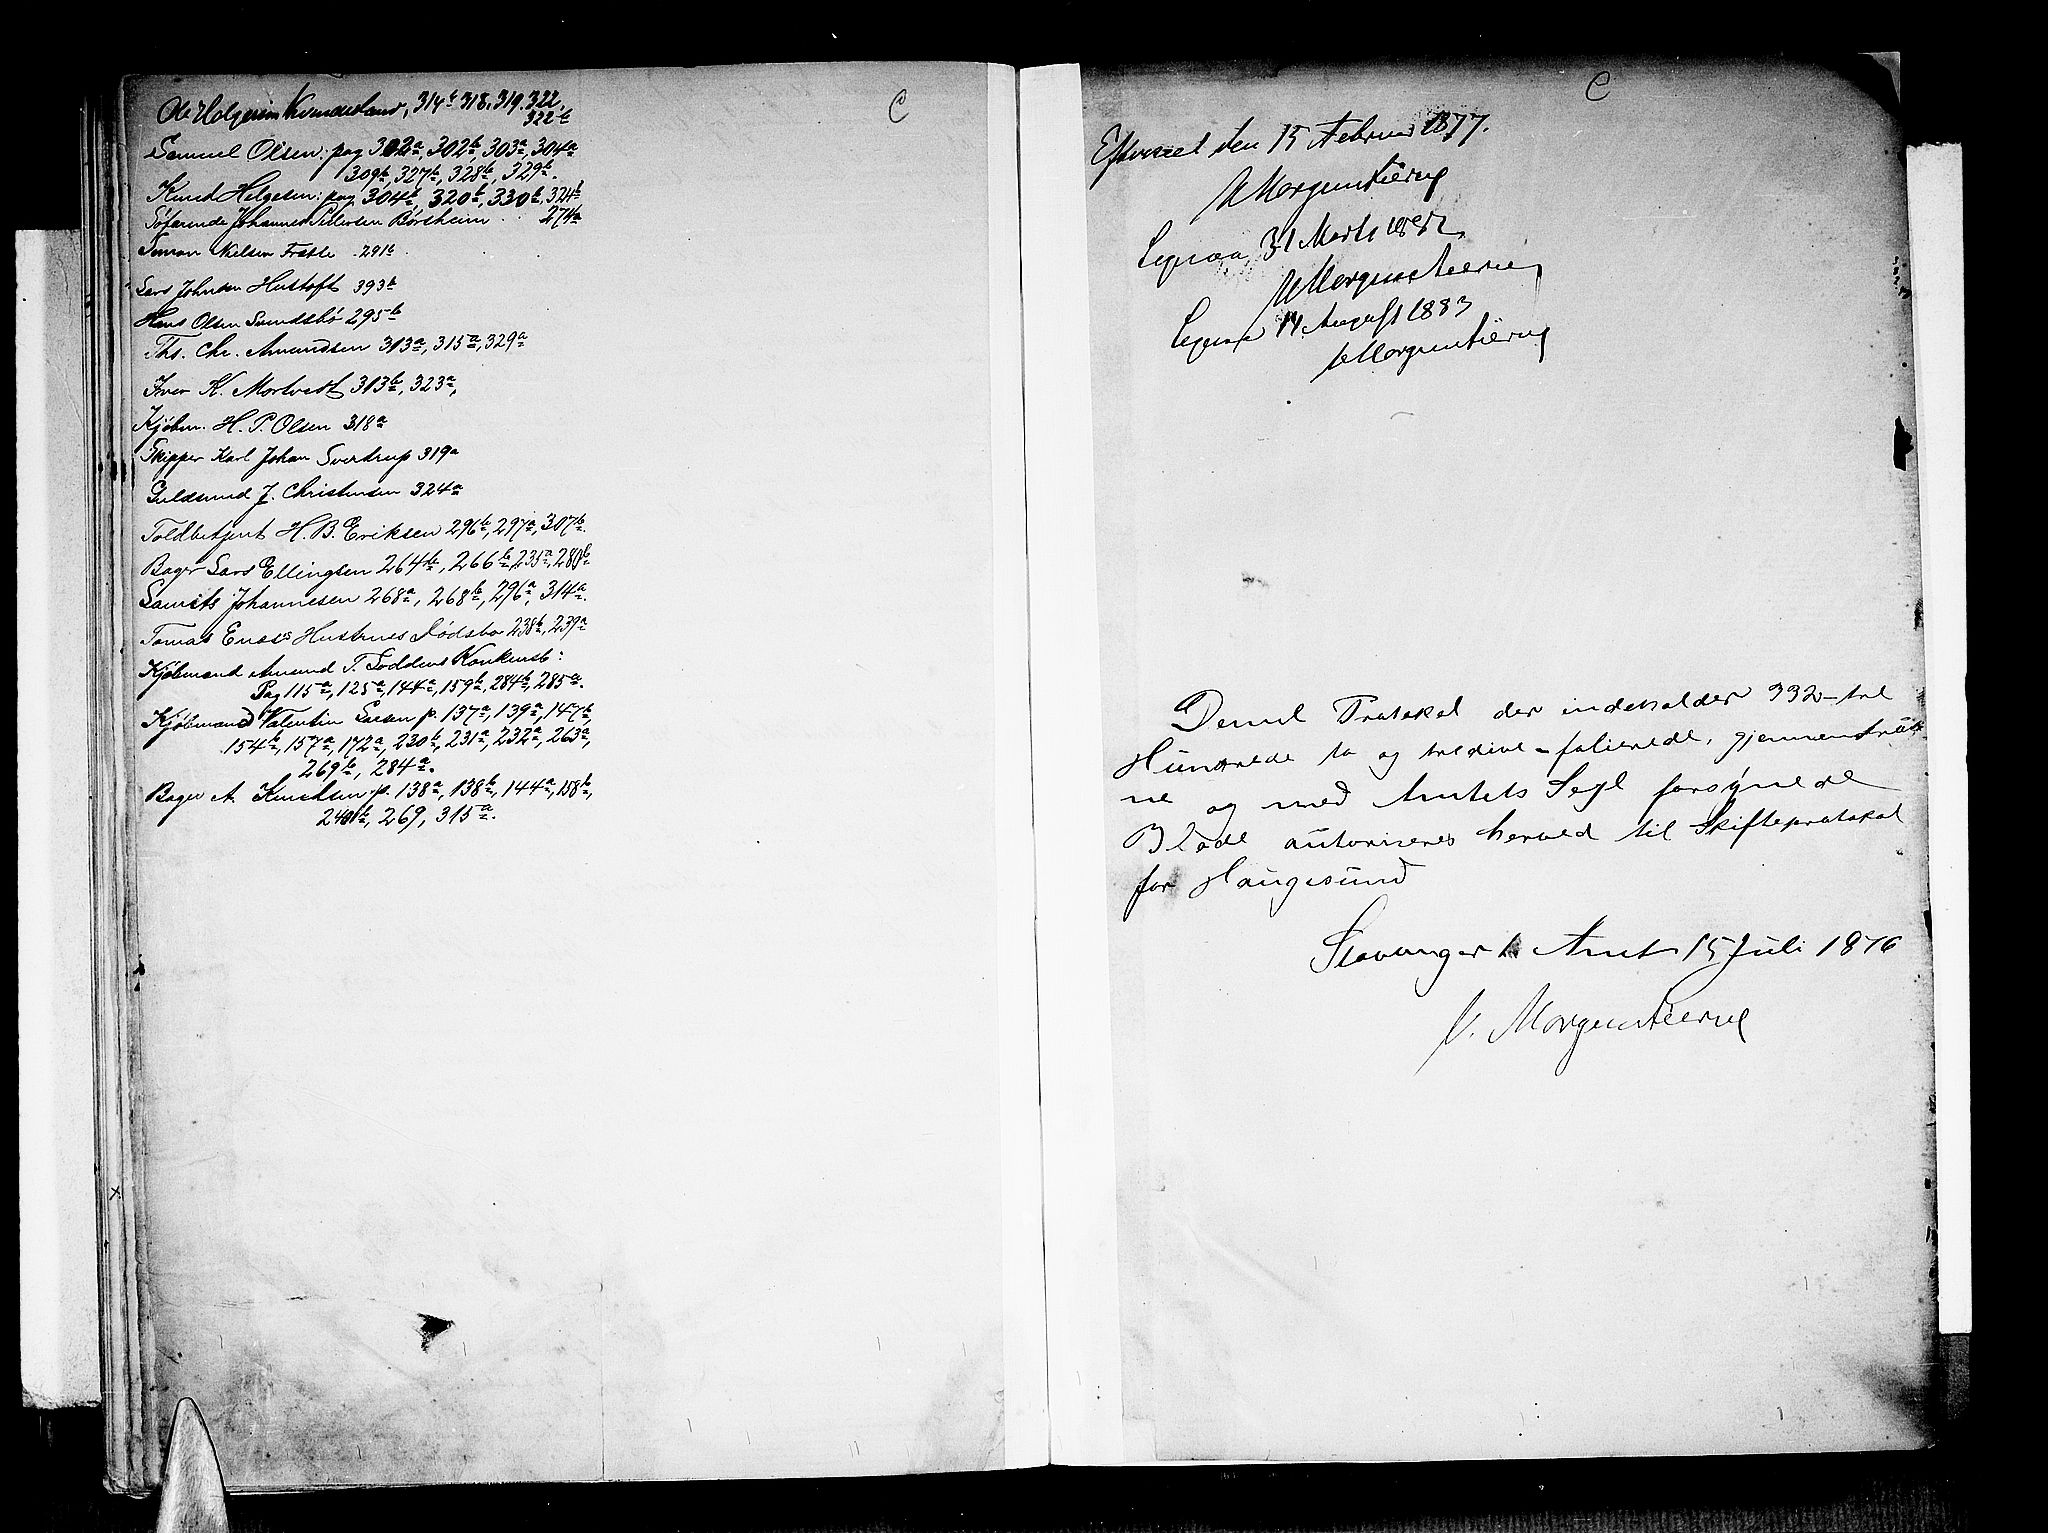 C
Ole Helgesen Kvinnesland, 314b 318. 319. 322,
322b
Samuel Olsen: pag 302a, 302b, 303a, 304a
309b, 327b, 328b, 329b.
Knud Helgesen: pag 304b, 320b, 330b, 324b,
Søfarende Johannes Pedersen Børsheim 274a
Simon Nielsen 291b
Lars Johnsen Hustoft 393b
Hans Olsen Svendsbø 295b
Ths. Chr. Amundsen 313a, 315a, 329a
Iver K. Mortvedt 313b, 323a,
Kjøbm. H. P. Olsen 318a
Skipper Karl Johan Sverdrup 319a
Guldsmed J. Christensen 324a
Toldbetjent H. B. Eriksen 296b, 297a, 307b.
Bager Lars Ellingsen 264b, 266b, 235a, 280b
Laurits Johannesen 268a, 268b, 296a, 314a.
Tomas Hustrues Dødsbo 238b, 239a
Kjøbmand Amund T. Loddens Konkursb:
Pag 115a, 125a, 144a, 159b, 284b, 285a.
Kjøbmand Valentin Larsen p. 137a, 139a, 147b,
154b, 157a, 172a, 230b, 231a, 232a, 263a,
269b, 284a.
Bager A. Knudsen p. 138a, 138b, 144a, 158b,
240b, 269, 315a.
C
Efterseet den 15 Februar 1877.
Morgenstierne
Ligesaa 31 Marts 1882
Morgenstierne
Ligesaa 14 August 1883
Morgenstierne
Denne Protokol der indeholder 332 – tre
Hundrede to og tredive – folierede, gjennemtruk
ne og med Amtets Segl forsynede
Blade autoriseres herved til Skifteprotokol
for Haugesund
Stavanger Amt 15 Juli 1876
V. Morgenstierne